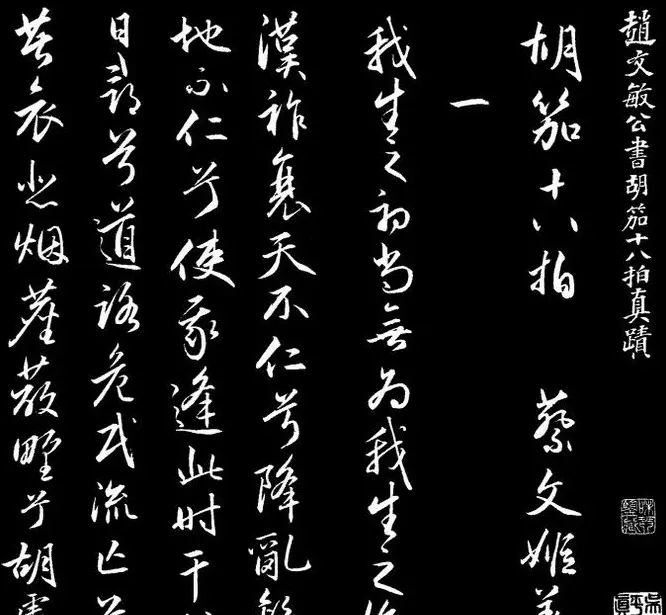 趙文敏公書胡笳十八拍真蹟
胡笳十八拍 蔡文姬
一
我生之初尚無為我生之
漢祚衰天不仁兮降亂
地不仁兮使我逢此時干
日尋兮道路危民流亡兮
共哀悲烟塵蔽野兮胡虜